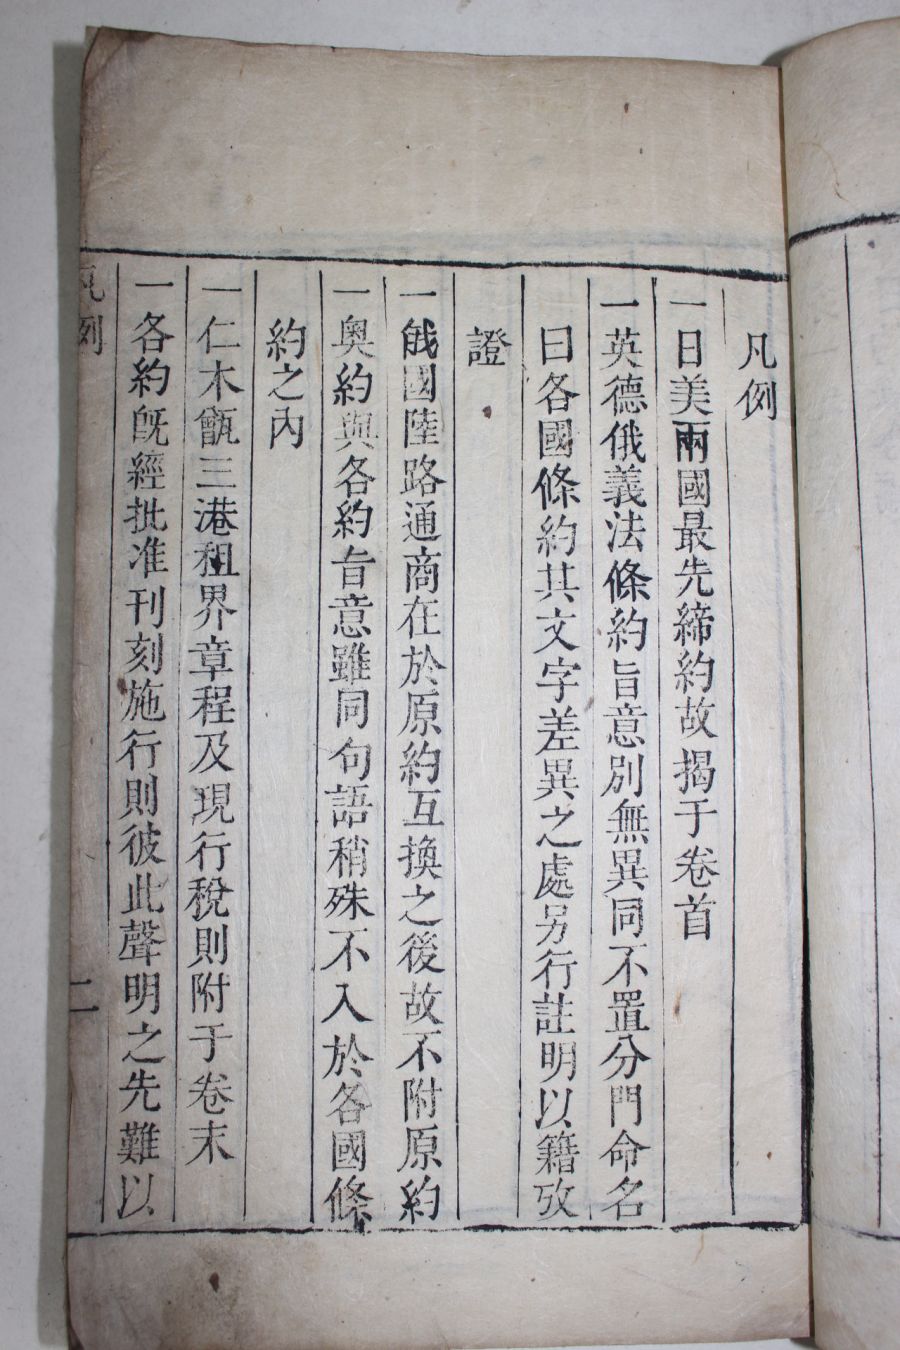 凡例
一日美兩國最先締約故揭于卷首
一英德俄義法條約旨意別無異同不置分門命名
曰各國條約其文字差異之處另行註明以籍攷
證
一俄國陸路通商在於原約互換之後故不附原約
一奧約與各約旨意雖同句語稍殊不入於各國條
約之內
一仁木甑三港租界章程及現行稅則附于卷末
一各約旣經批准刊刻施行則彼此聲明之先難以
凡例
二